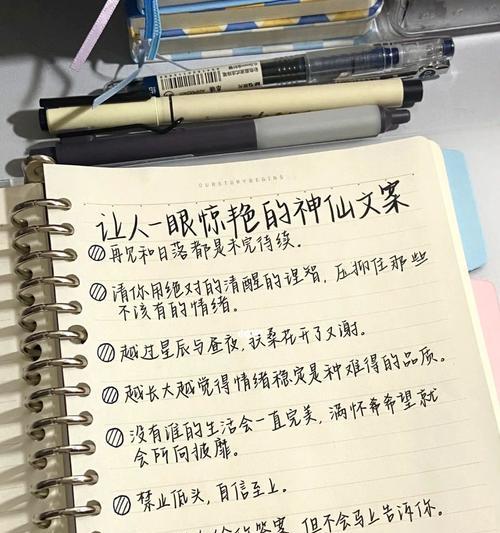 OURSTORYBEGINS
让人一眼惊艳的神仙文案
再见和日落都是未完待续。
请你用绝对的清醒的理智,压抑住那些
不该有的情绪。
越过星辰与昼夜,扶桑花开了又谢。
越长大越觉得情绪稳定是种难得的品质。
没有谁的生活会一直完美,满怀希望就
会所向披靡。
禁止低头,自信至上。
答案,但不会马上告诉你。